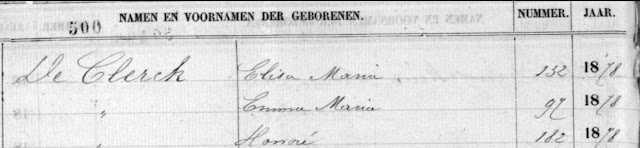 500 NAMEN EN VOORNAMEN DER GEBORENEN. NUMMER. JAAR.
De Clerck Elisa Maria 132 1878
" Emma Maria 97 1878
" Honoré 182 1878